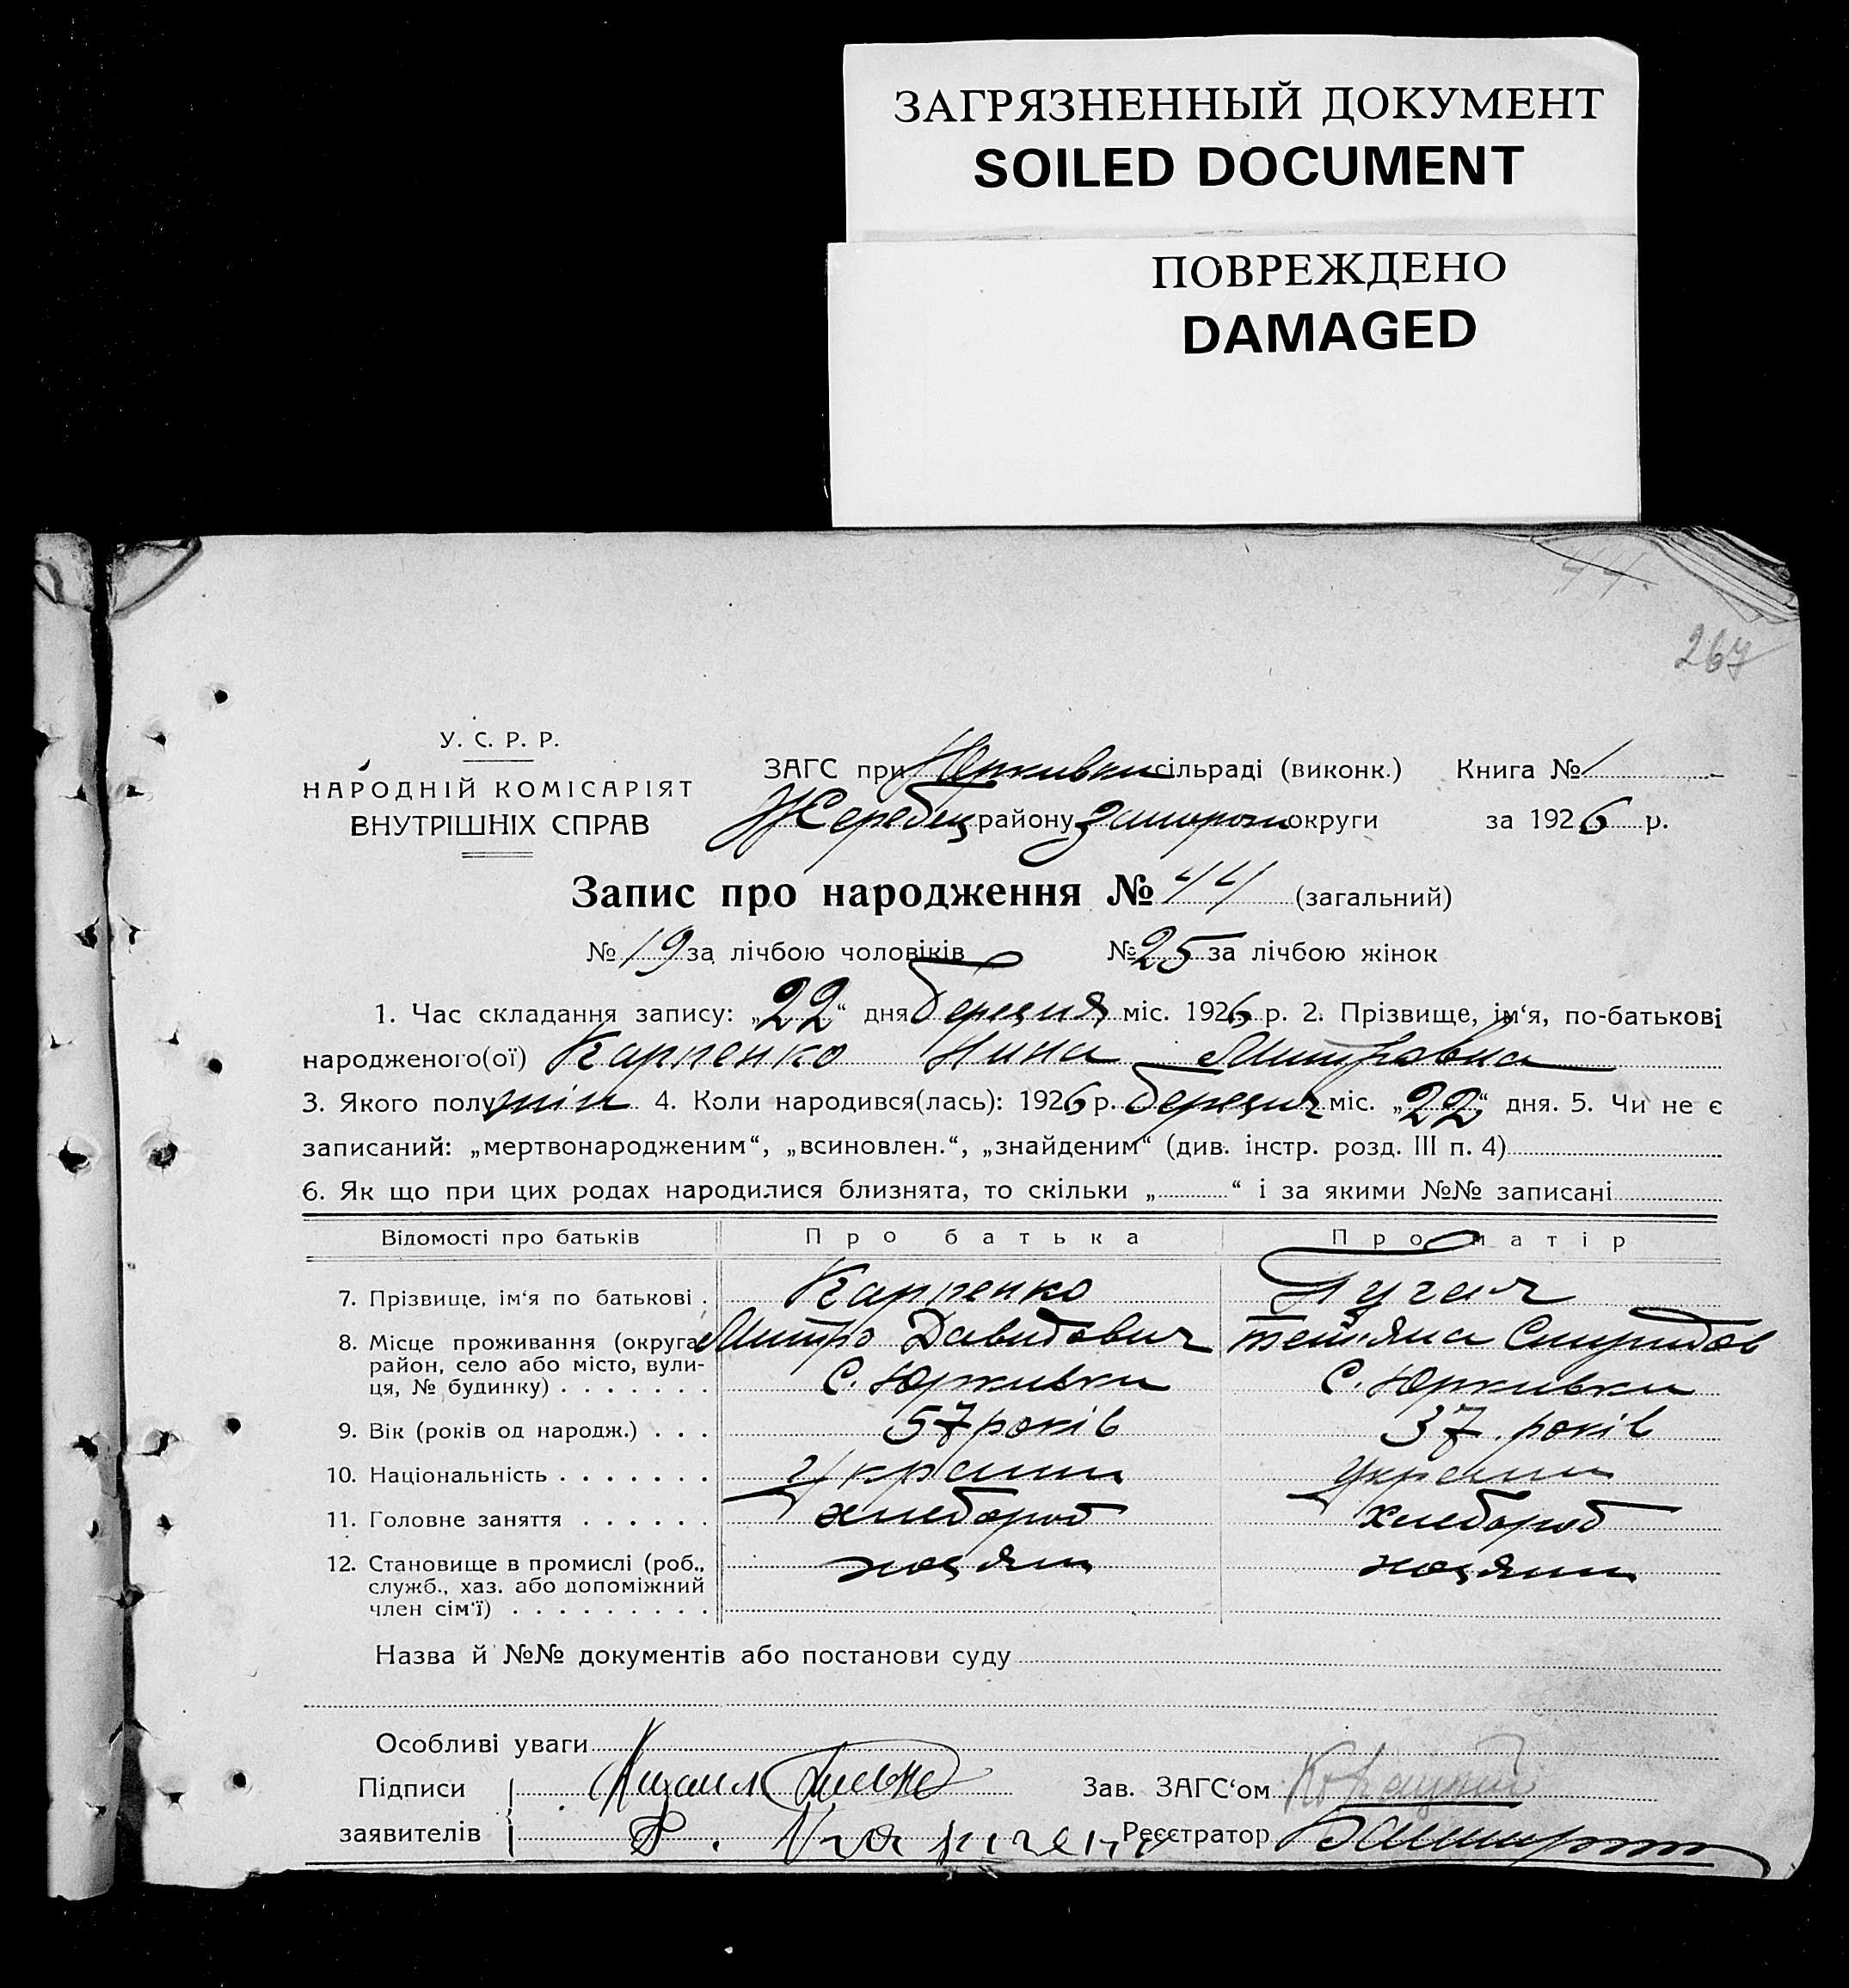 ЗАГРЯЗНЕННЫЙ ДОКУМЕНТ
SOILED DOCUMENT
ПОВРЕЖДЕНО
DAMAGED
44.
267
У. С. Р. Р.
НАРОДНІЙ КОМІСАРІЯТ
ВНУТРІШНІХ СПРАВ
ЗАГС при Юркивки сільраді (виконк.) Книга № 1
Жеребец району округи за 1926 р.
Запис про народження № 44 (загальний)
№ 19 за лічбою чоловіків № 25 за лічбою жінок
1. Час складання запису: „22“ дня березня міс. 1926 р. 2. Прізвище, ім‘я, по-батькові
народженого(ої) Карпенко Нина Митровна
3. Якого полу жін 4. Коли народився(лась): 1926 р. березня міс. „22“ дня. 5. Чи не є
записаний: „мертвонародженим“, „всиновлен.“, „знайденим“ (див. інстр. розд. III п. 4)
6. Як що при цих родах народилися близнята, то скільки „ “ і за якими №№ записані
Відомості про батьків Про батька Про матір
7. Прізвище, ім‘я по батькові Карпенко Пугач
8. Місце проживання (округа, Митро Давидович Тетяна Спиридов
район, село або місто, вули-
ця, № будинку) . . . . . . . с. Юркивки с. Юркивки
9. Вік (років од народж.) . . . 57 років 37 років
10. Національність . . . . . . . Украин Украин
11. Головне заняття . . . . . . хлебороб хлебороб
12. Становище в промислі (роб.,
служб., хаз. або допоміжний
член сім‘ї) . . . . . . . . .
Назва й №№ документів або постанови суду
Особливі уваги
Підписи Зав. ЗАГС‘ом
заявителів Реєстратор